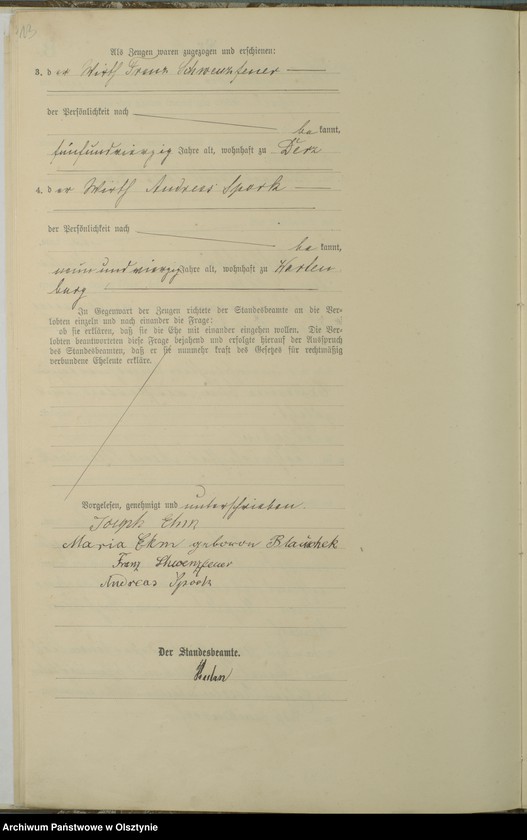 Als Zeugen waren zugezogen und erschienen:
3. der Wirth Franz Schwenzfeuer
der Persönlichkeit nach
be kannt,
fünfundvierzig Jahre alt, wohnhaft zu Derz
4. der Wirth Andreas Spork
der Persönlichkeit nach
be kannt,
neunundvierzig Jahre alt, wohnhaft zu Warten
burg
In Gegenwart der Zeugen richtete der Standesbeamte an die Ver-
lobten einzeln und nach einander die Frage:
ob sie erklären, daß sie die Ehe mit einander eingehen wollen. Die Ver-
lobten beantworteten diese Frage bejahend und erfolgte hierauf der Ausspruch
des Standesbeamten, daß er sie nunmehr kraft des Gesetzes für rechtmäßig
verbundene Eheleute erkläre.
Vorgelesen, genehmigt und unterschrieben.
Joseph
Maria geboren
Franz Schwenzfeuer
Andreas Spork
Der Standesbeamte.
Archiwum Państwowe w Olsztynie